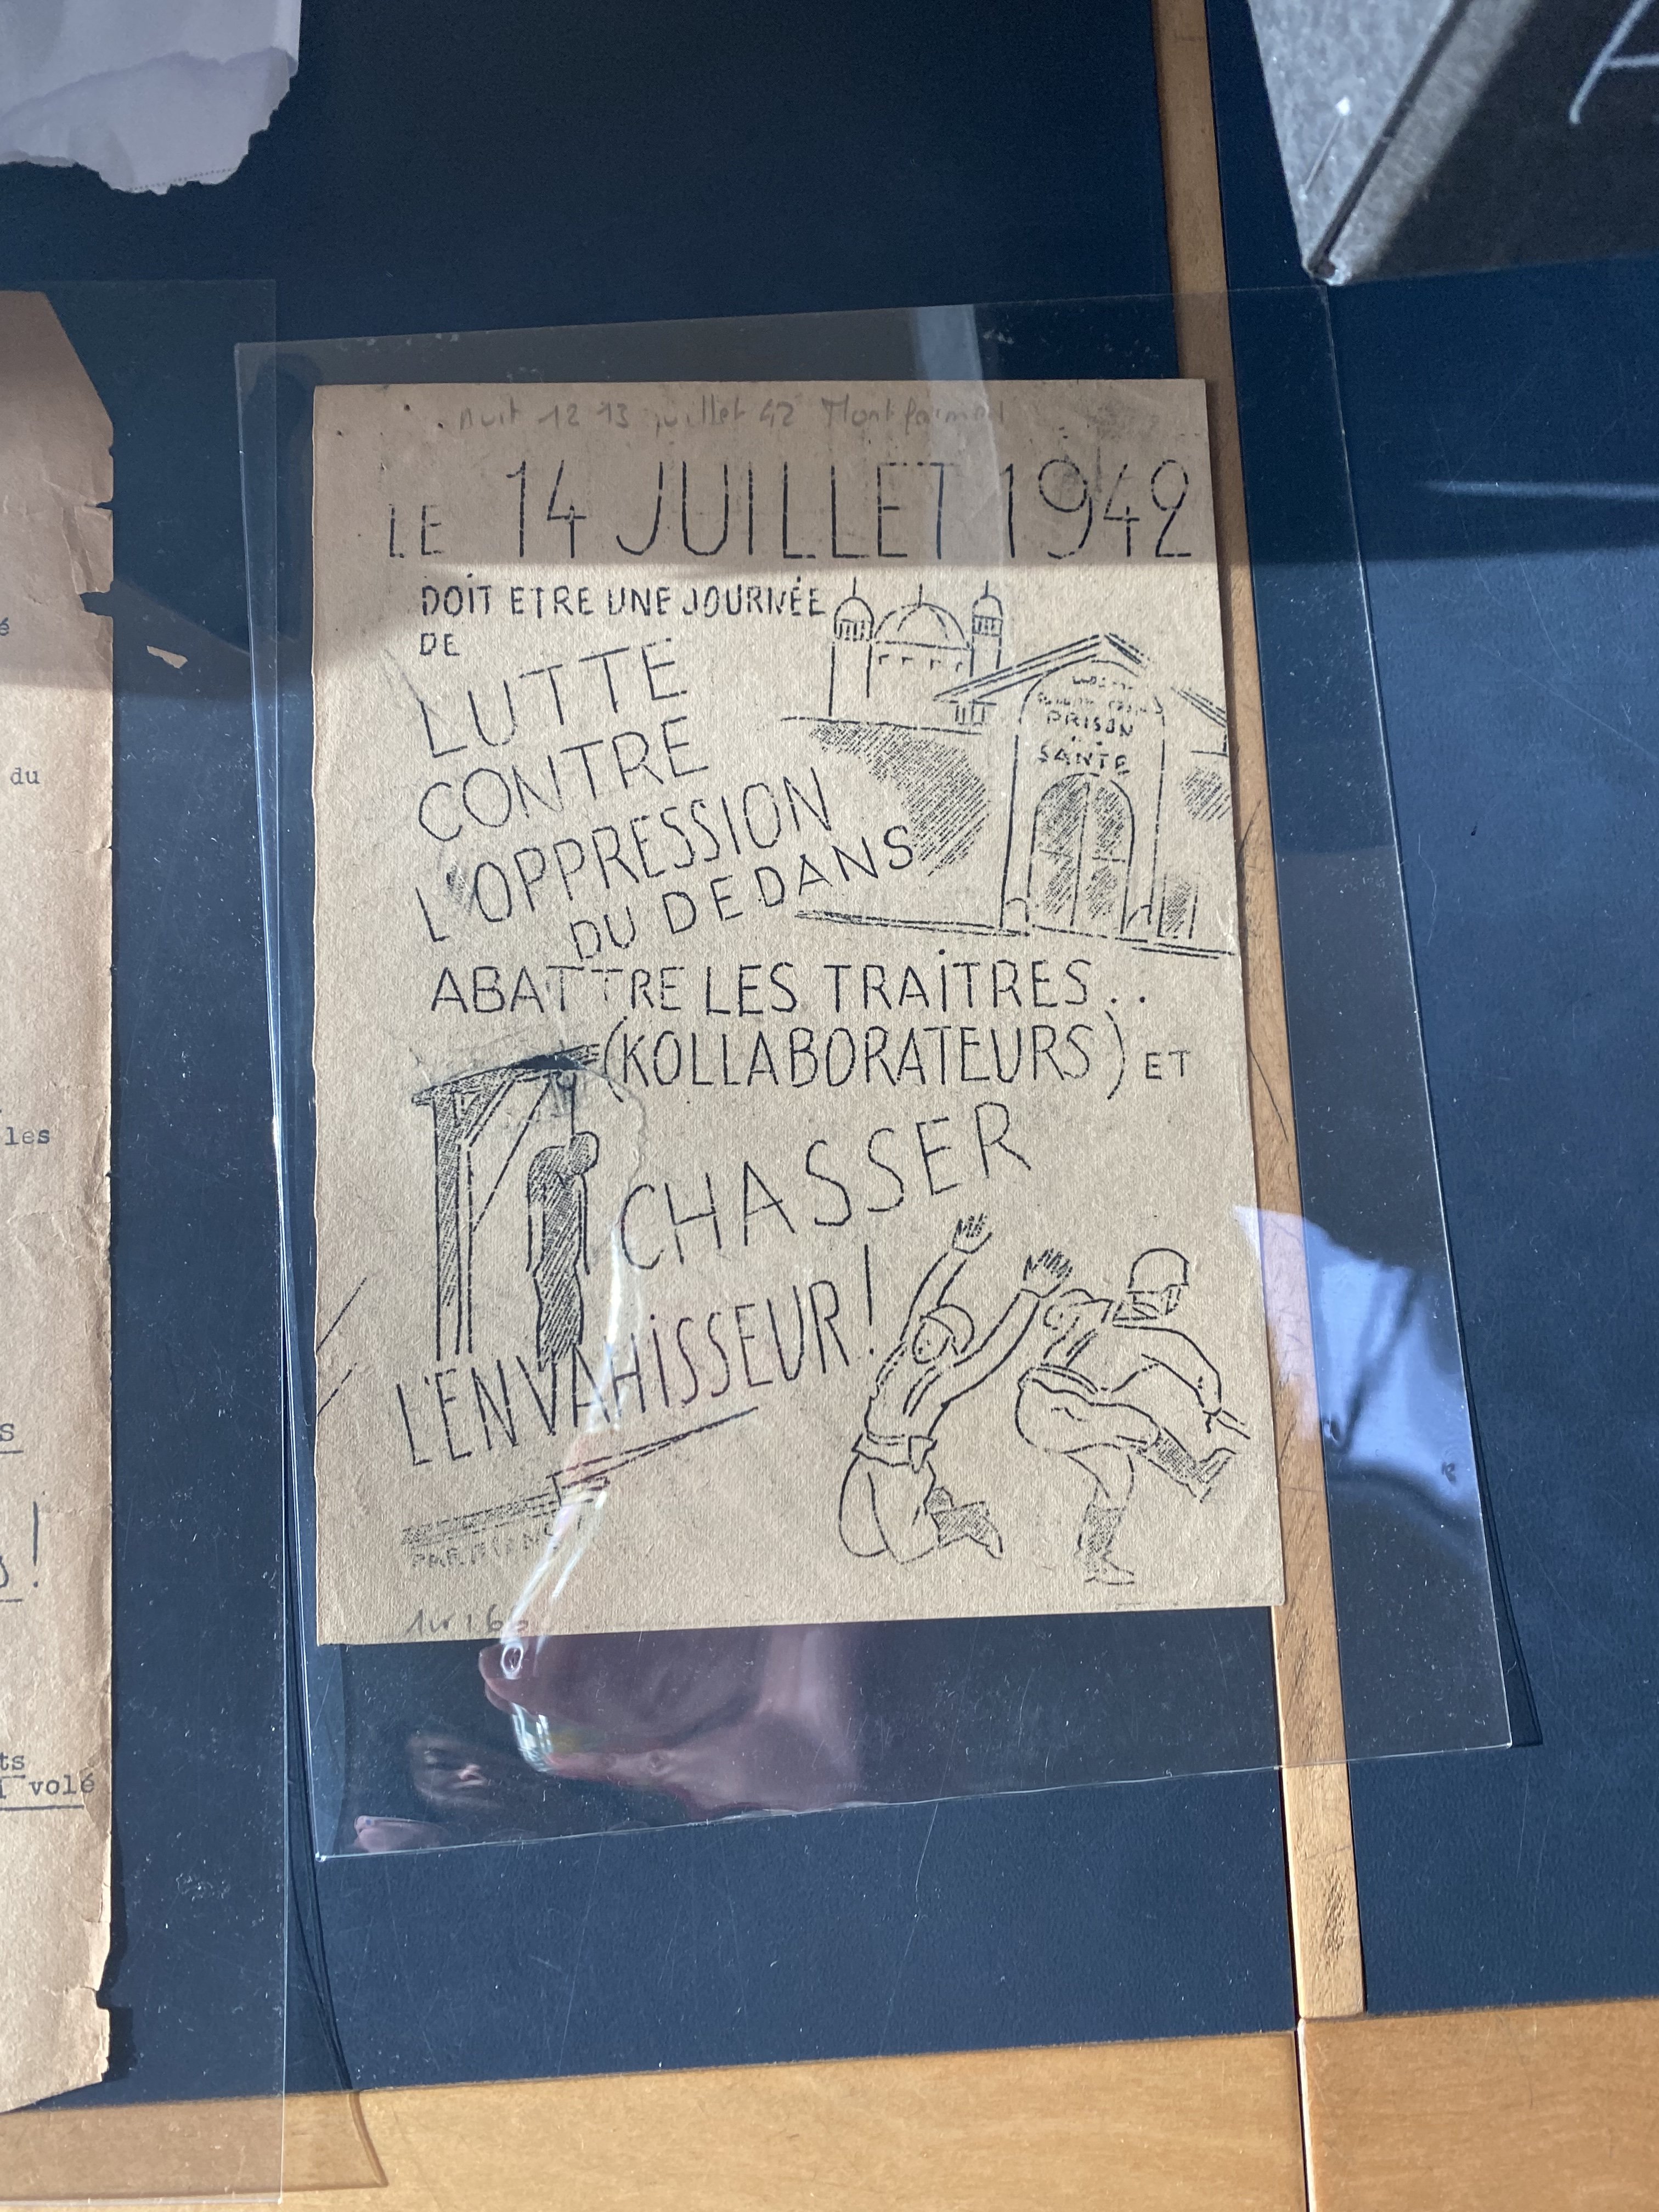 é
du
les
s
!
ts
volé
Nuit 12 13 juillet 42 Montfermeil
LE 14 JUILLET 1942
DOIT ETRE UNE JOURNÉE
DE
LUTTE
CONTRE
L'OPPRESSION
DU DEDANS
PRISON
SANTE
ABATTRE LES TRAITRES..
(KOLLABORATEURS) ET
CHASSER
L'ENVAHISSEUR!